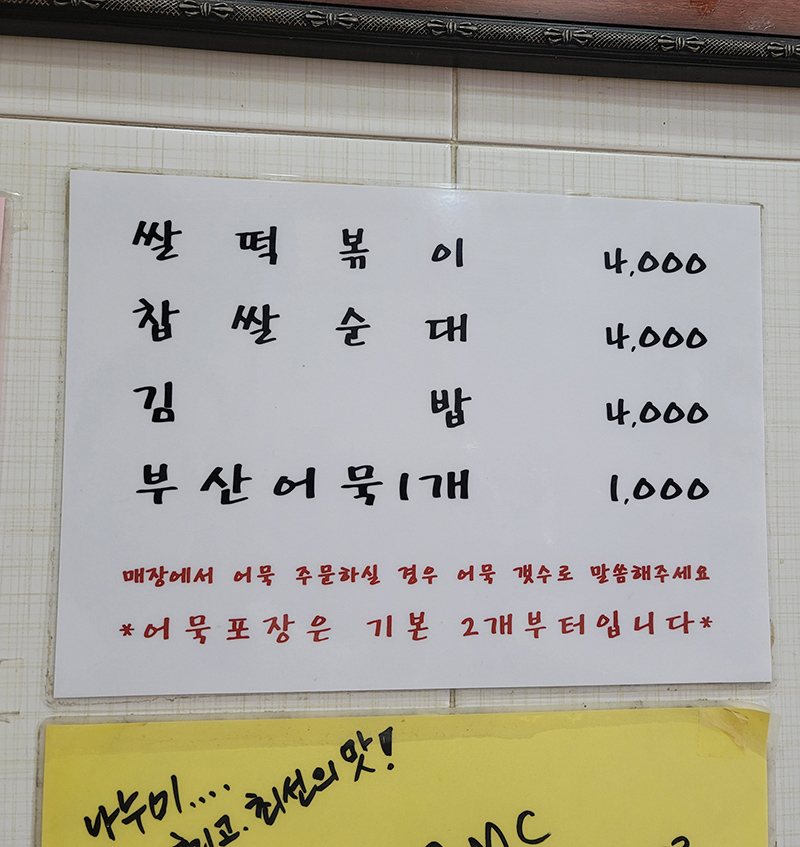 쌀떡볶이 4,000
찹쌀순대 4,000
김밥 4,000
부산어묵1개 1,000
매장에서 어묵 주문하실 경우 어묵 갯수로 말씀해주세요
*어묵포장은 기본 2개부터입니다*
나누미....
최고. 최선의맛!
MC